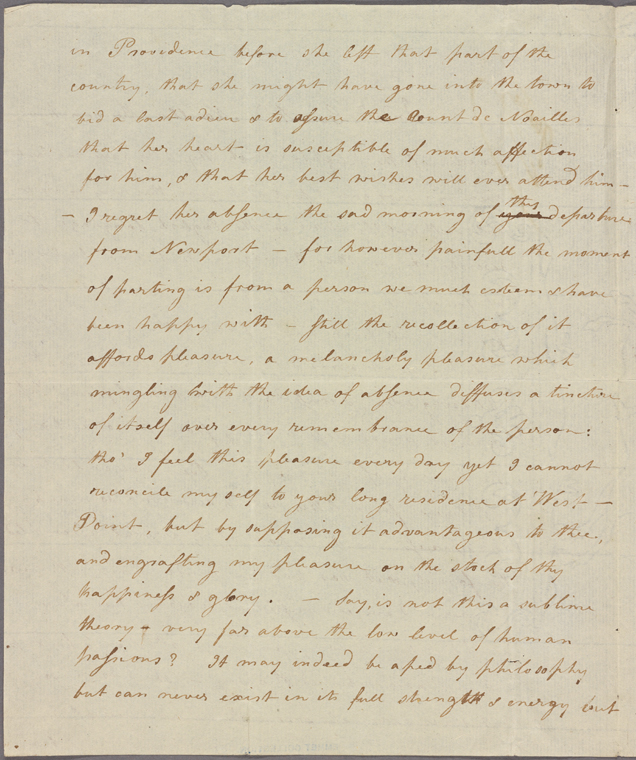 in Providence before she left that part of the
country, that she might have gone into the town to
bid a last adieu & to assure the Count de Noailles
that her heart is susceptible of much affection
for him, & that her best wishes will ever attend him —
— I regret her absence the sad morning of your thy departure
from Newport — for however painfull the moment
of parting is from a person we much esteem & have
been happy with — still the recollection of it
affords pleasure, a melancholy pleasure which
mingling with the idea of absence diffuses a tincture
of itself over every remembrance of the person:
tho' I feel this pleasure every day yet I cannot
reconcile myself to your long residence at West —
Point, but by supposing it advantageous to thee,
and engrafting my pleasure on the stock of thy
happiness & glory. — Say, is not this a sublime
theory — very far above the low level of human
passions? It may indeed be aped by philosophy
but can never exist in its full strength & energy but